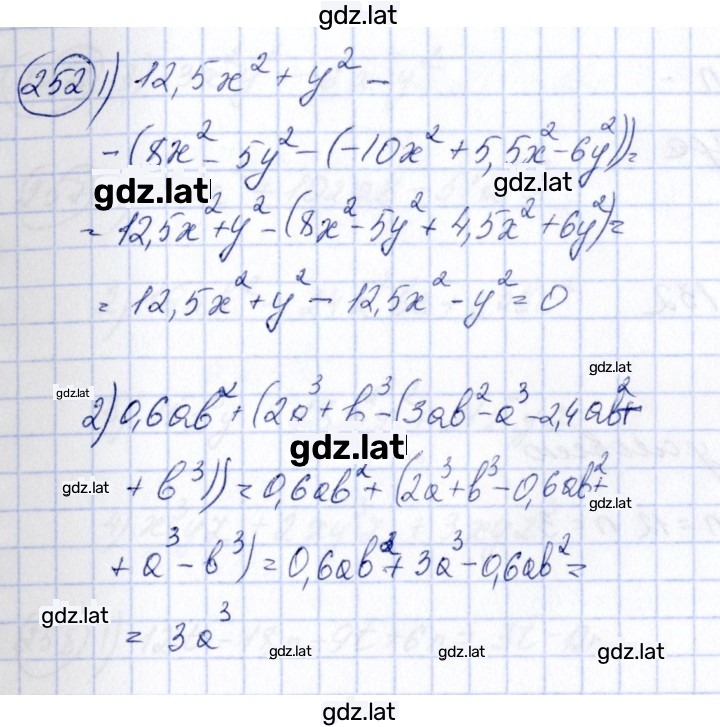 gdz.lat
252 1) 12,5x² + y² -
- (8x² - 5y² - (-10x² + 5,5x² - 6y²)) =
gdz.lat gdz.lat
= 12,5x² + y² - (8x² - 5y² + 4,5x² + 6y²) =
= 12,5x² + y² - 12,5x² - y² = 0
gdz.lat
gdz.lat
2) 0,6ab² + (2a³ + b³ - (3ab² - a³ - 2,4ab² +
gdz.lat
gdz.lat + b³)) = 0,6ab² + (2a³ + b³ - 0,6ab² +
gdz.lat
+ a³ - b³) = 0,6ab² + 3a³ - 0,6ab² =
gdz.lat
= 3a³
gdz.lat gdz.lat gdz.lat
gdz.lat